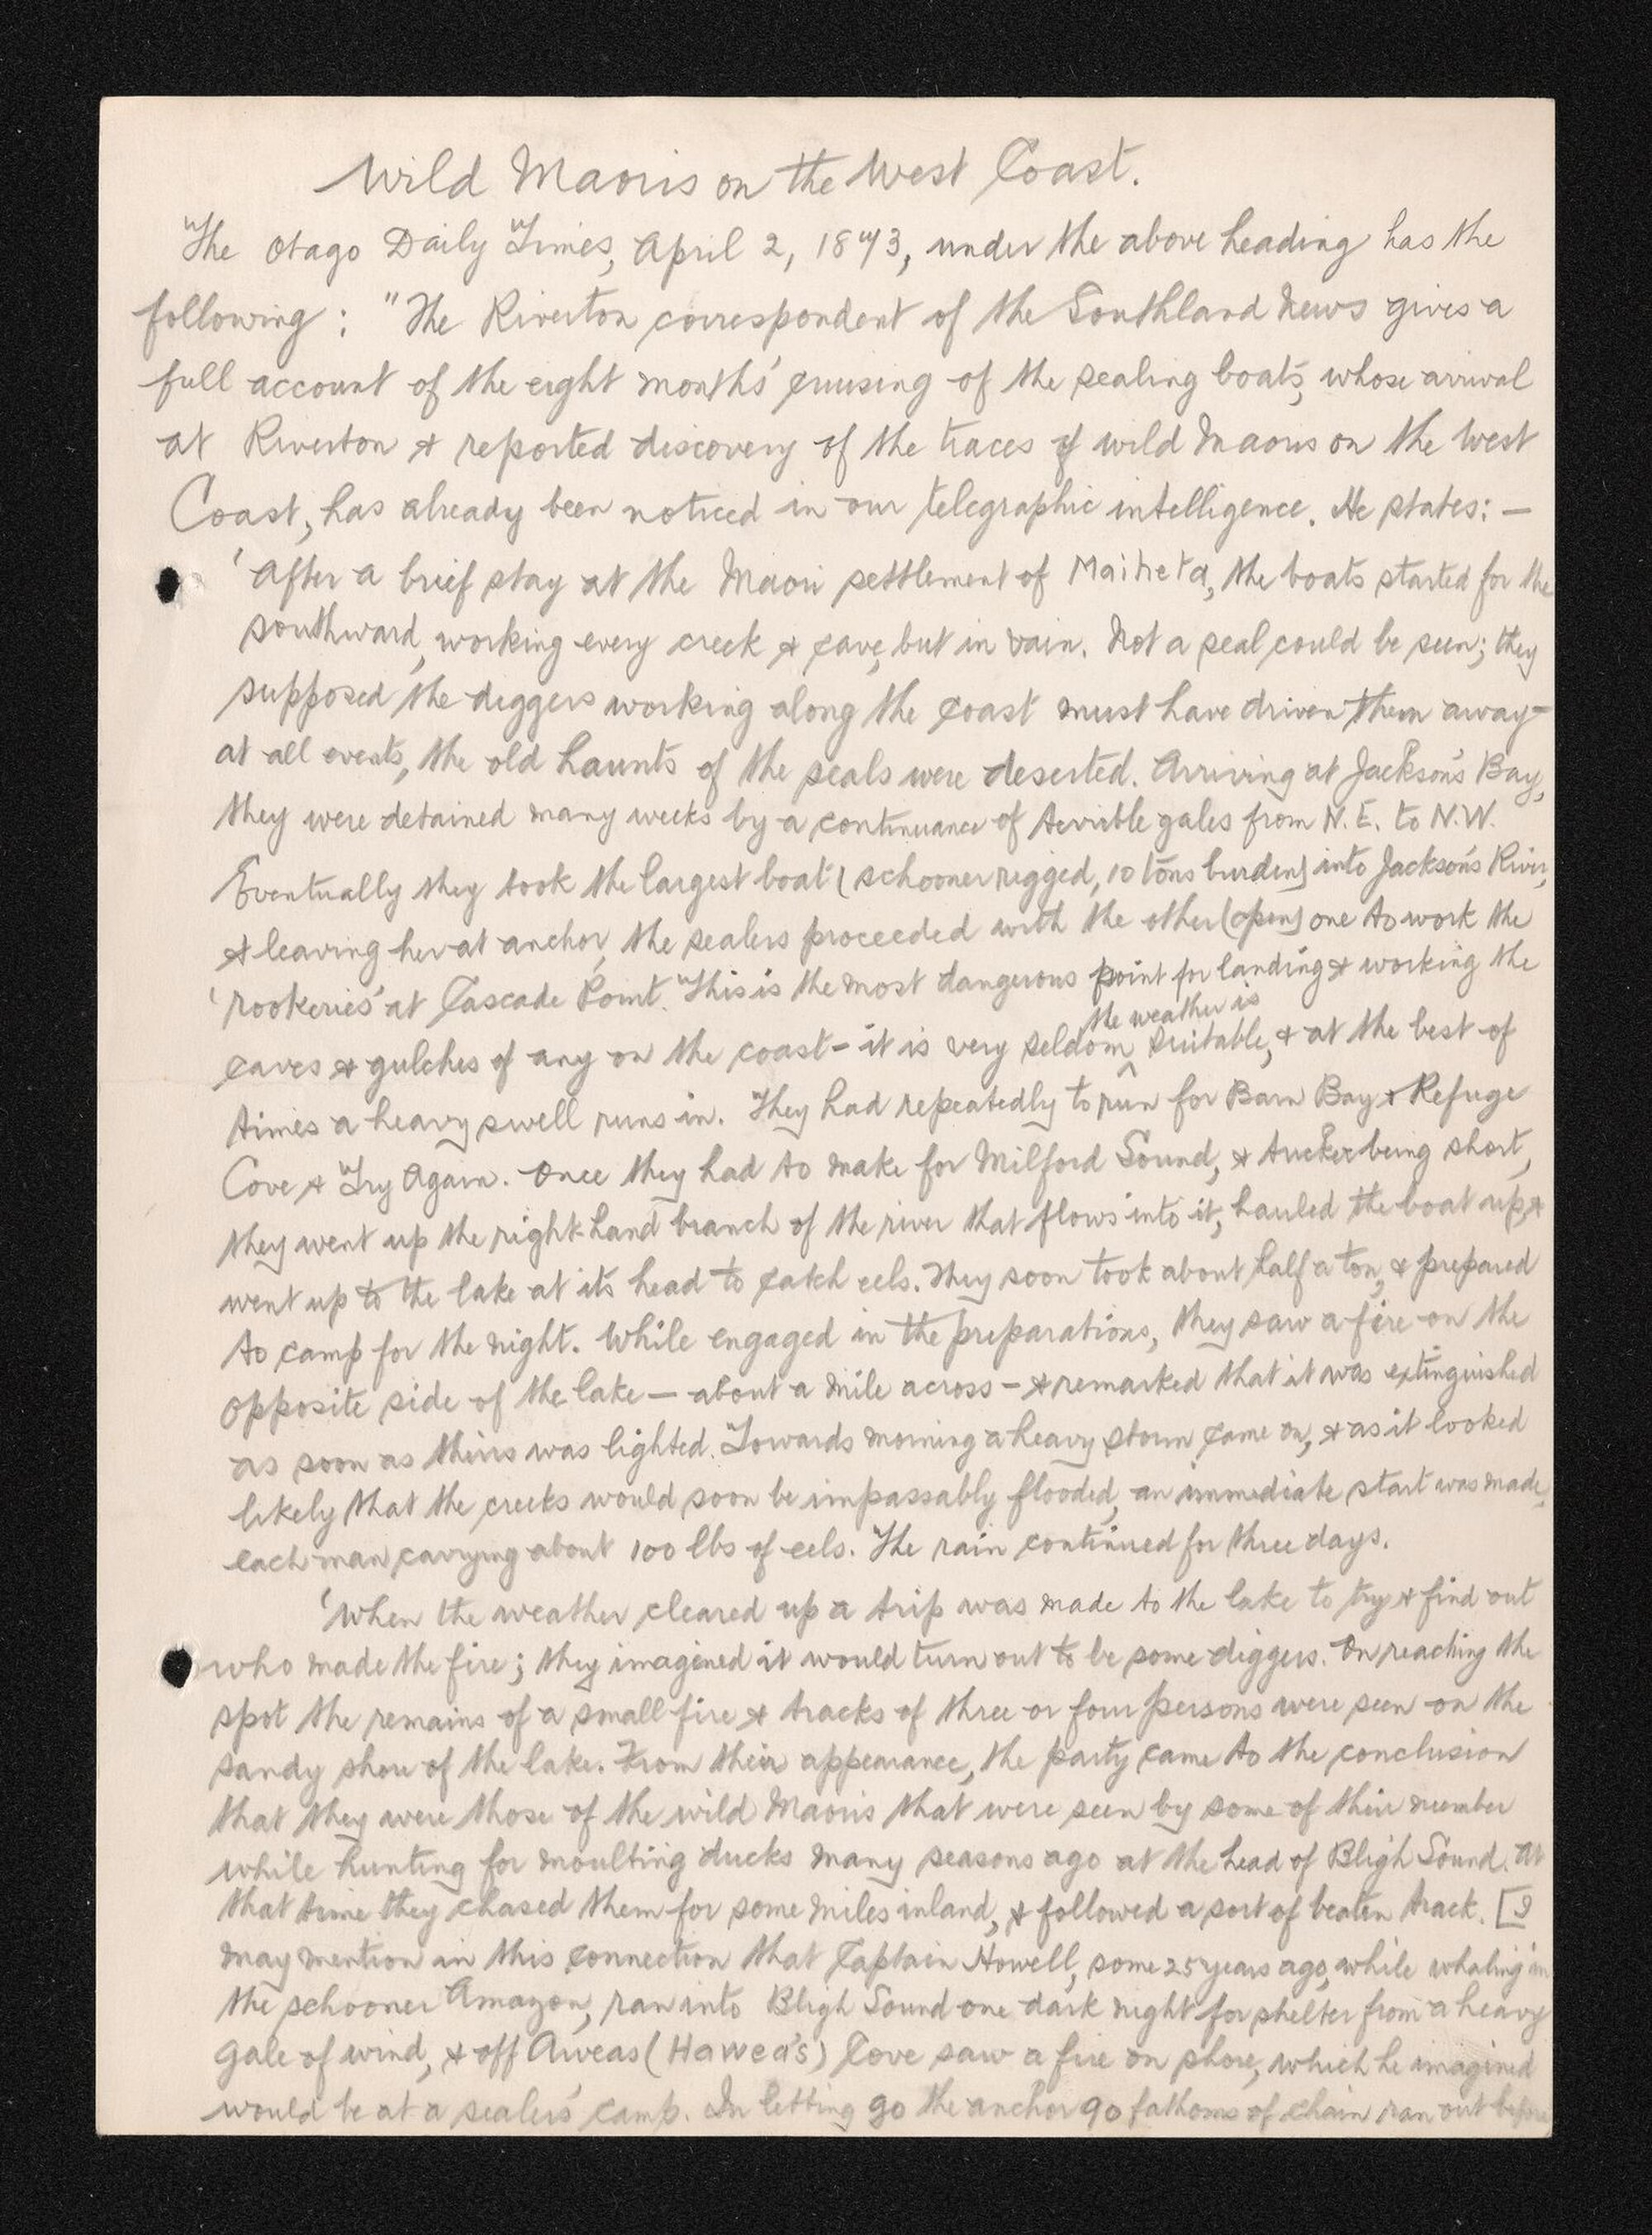 Wild Maoris on the West Coast.
The Otago Daily Times, April 2, 1873, under the above heading has the
following: "The Riverton correspondent of the Southland News gives a
full account of the eight months' cruising of the sealing boats, whose arrival
at Riverton & reported discovery of the traces of wild Maoris on the West
Coast, has already been noticed in our telegraphic intelligence. He states: —
'After a brief stay at the Maori settlement of Maiheta, the boats started for the
southward, working every creek & cave, but in vain. Not a seal could be seen; they
supposed the diggers working along the coast must have driven them away –
at all events, the old haunts of the seals were deserted. Arriving at Jackson's Bay,
they were detained many weeks by a continuance of terrible gales from N.E. to N.W.
Eventually they took the largest boat (schooner rigged, 10 tons burden) into Jackson's River,
& leaving her at anchor, the sealers proceeded with the other (open) one to work the
'rookeries' at Cascade Point. This is the most dangerous point for landing & working the
caves & gulches of any on the coast – it is very seldom the weather is suitable, & at the best of
times a heavy swell runs in. They had repeatedly to run for Barn Bay & Refuge
Cove & Try Again. Once they had to make for Milford Sound, & tucker being short,
they went up the right-hand branch of the river that flows into it, hauled the boat up, &
went up to the lake at its head to catch eels. They soon took about half a ton, & prepared
to camp for the night. While engaged in the preparations, they saw a fire on the
opposite side of the lake — about a mile across – & remarked that it was extinguished
as soon as theirs was lighted. Towards morning a heavy storm came on, & as it looked
likely that the creeks would soon be impassably flooded, an immediate start was made,
each man carrying about 100 lbs of eels. The rain continued for three days.
'When the weather cleared up a trip was made to the lake to try & find out
who made the fire; they imagined it would turn out to be some diggers. On reaching the
spot the remains of a small fire & tracks of three or four persons were seen on the
sandy shore of the lake. From their appearance, the party came to the conclusion
that they were those of the wild Maoris that were seen by some of their number
while hunting for moulting ducks many seasons ago at the head of Bligh Sound. At
that time they chased them for some miles inland, & followed a sort of beaten track. [I
may mention in this connection that Captain Howell, some 25 years ago, while whaling in
the schooner Amazon, ran into Bligh Sound one dark night for shelter from a heavy
gale of wind, & off Aweas (Hawea's) Cove saw a fire on shore, which he imagined
would be at a sealers' camp. In letting go the anchor 90 fathoms of chain ran out before